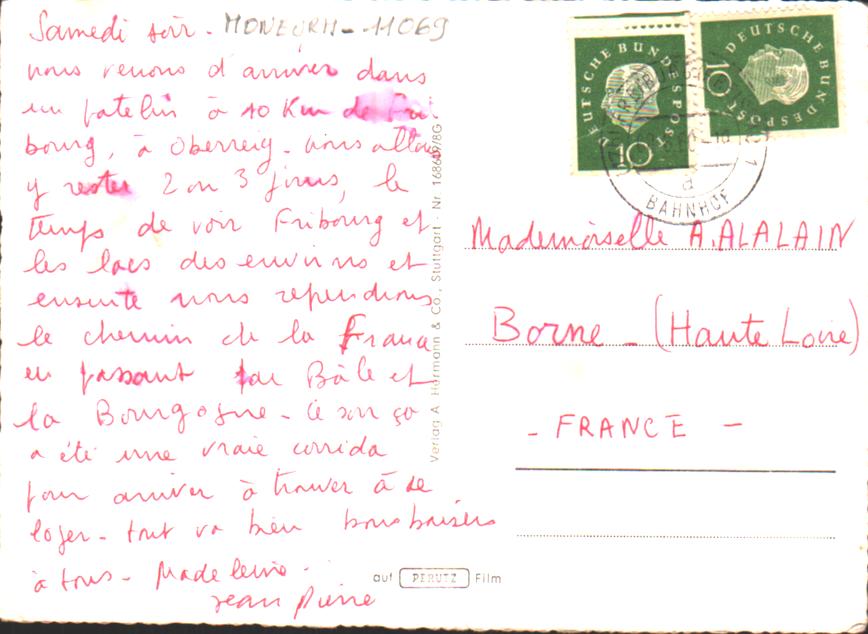 Samedi soir - MONEURH - 11069
nous venons d'arriver dans
un patelin à 10 Km de Fri
bourg, à Oberreig. Nous allons
y rester 2 ou 3 jours, le
temps de voir Fribourg et
les lacs des environs et
ensuite nous reprendrons
le chemin de la France
en passant par Bâle et
la Bourgogne - Ce soir ça
a été une vraie corrida
pour arriver à trouver à se
loger - tout va bien bons baisers
à tous - Madeleine -
Jean Pierre
Verlag A. Herrmann & Co., Stuttgart - Nr. /8G
auf PERUTZ Film
DEUTSCHE BUNDESPOST
10
DEUTSCHE BUNDESPOST
10
BAHNHOF
Mademoiselle A. ALALAIN
Borne - (Haute Loire)
- FRANCE -